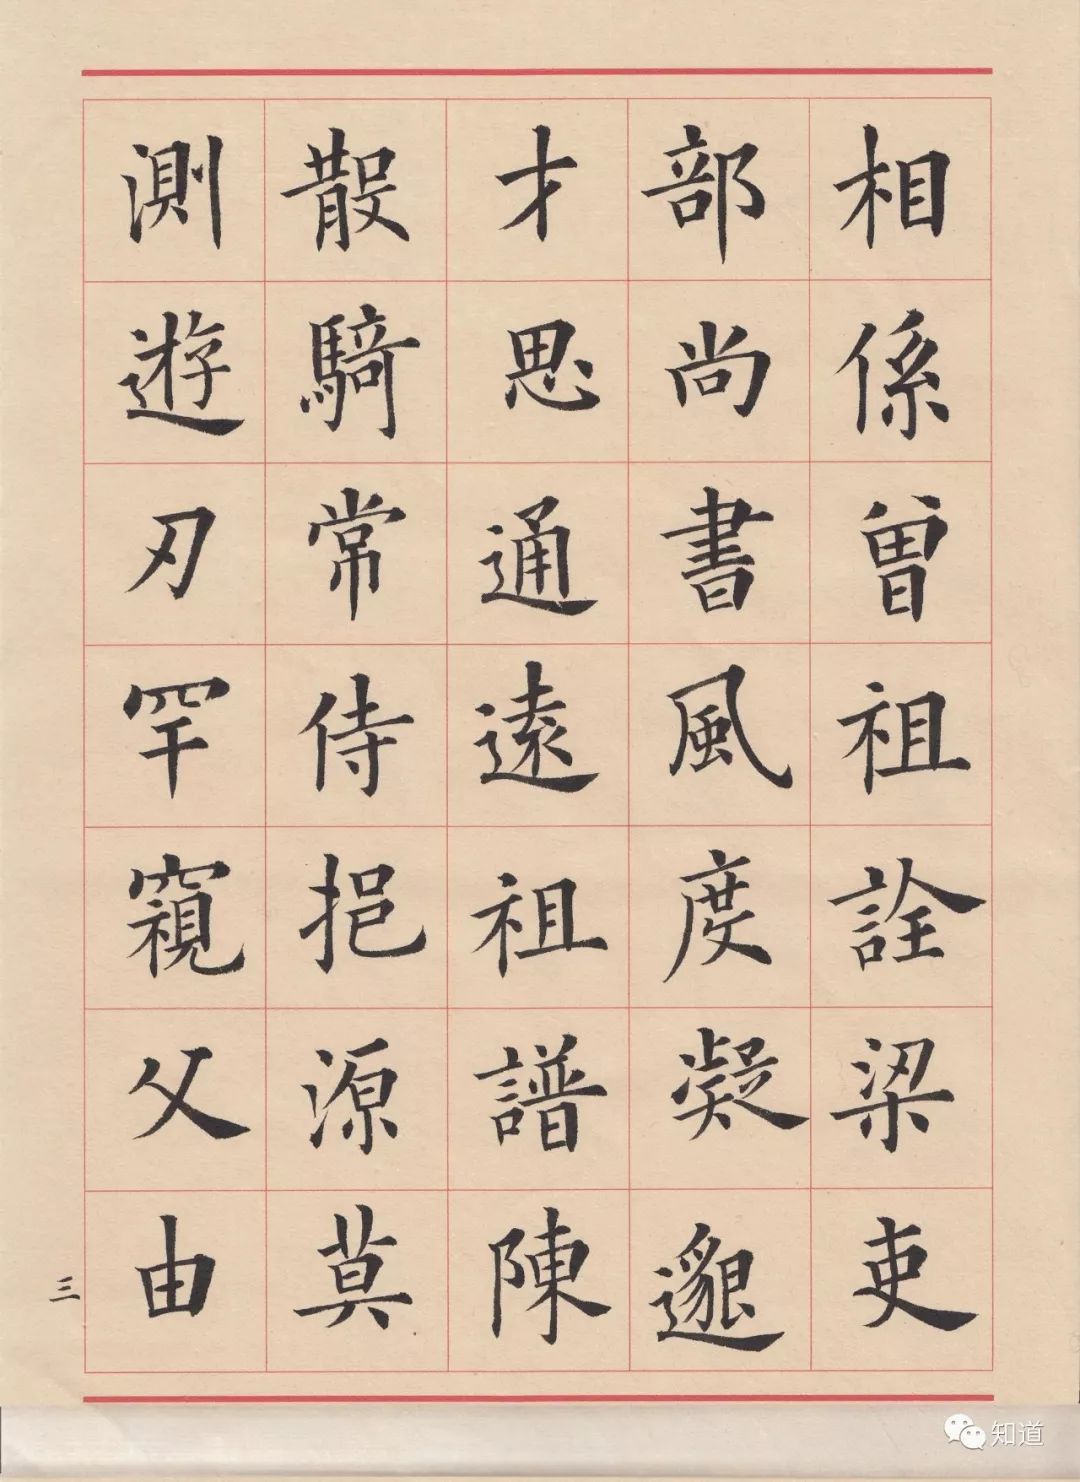 相係曾祖詮梁吏
部尚書風度凝邈
才思通遠祖譜陳
散騎常侍挹源莫
測遊刃罕窺父由
三
知道